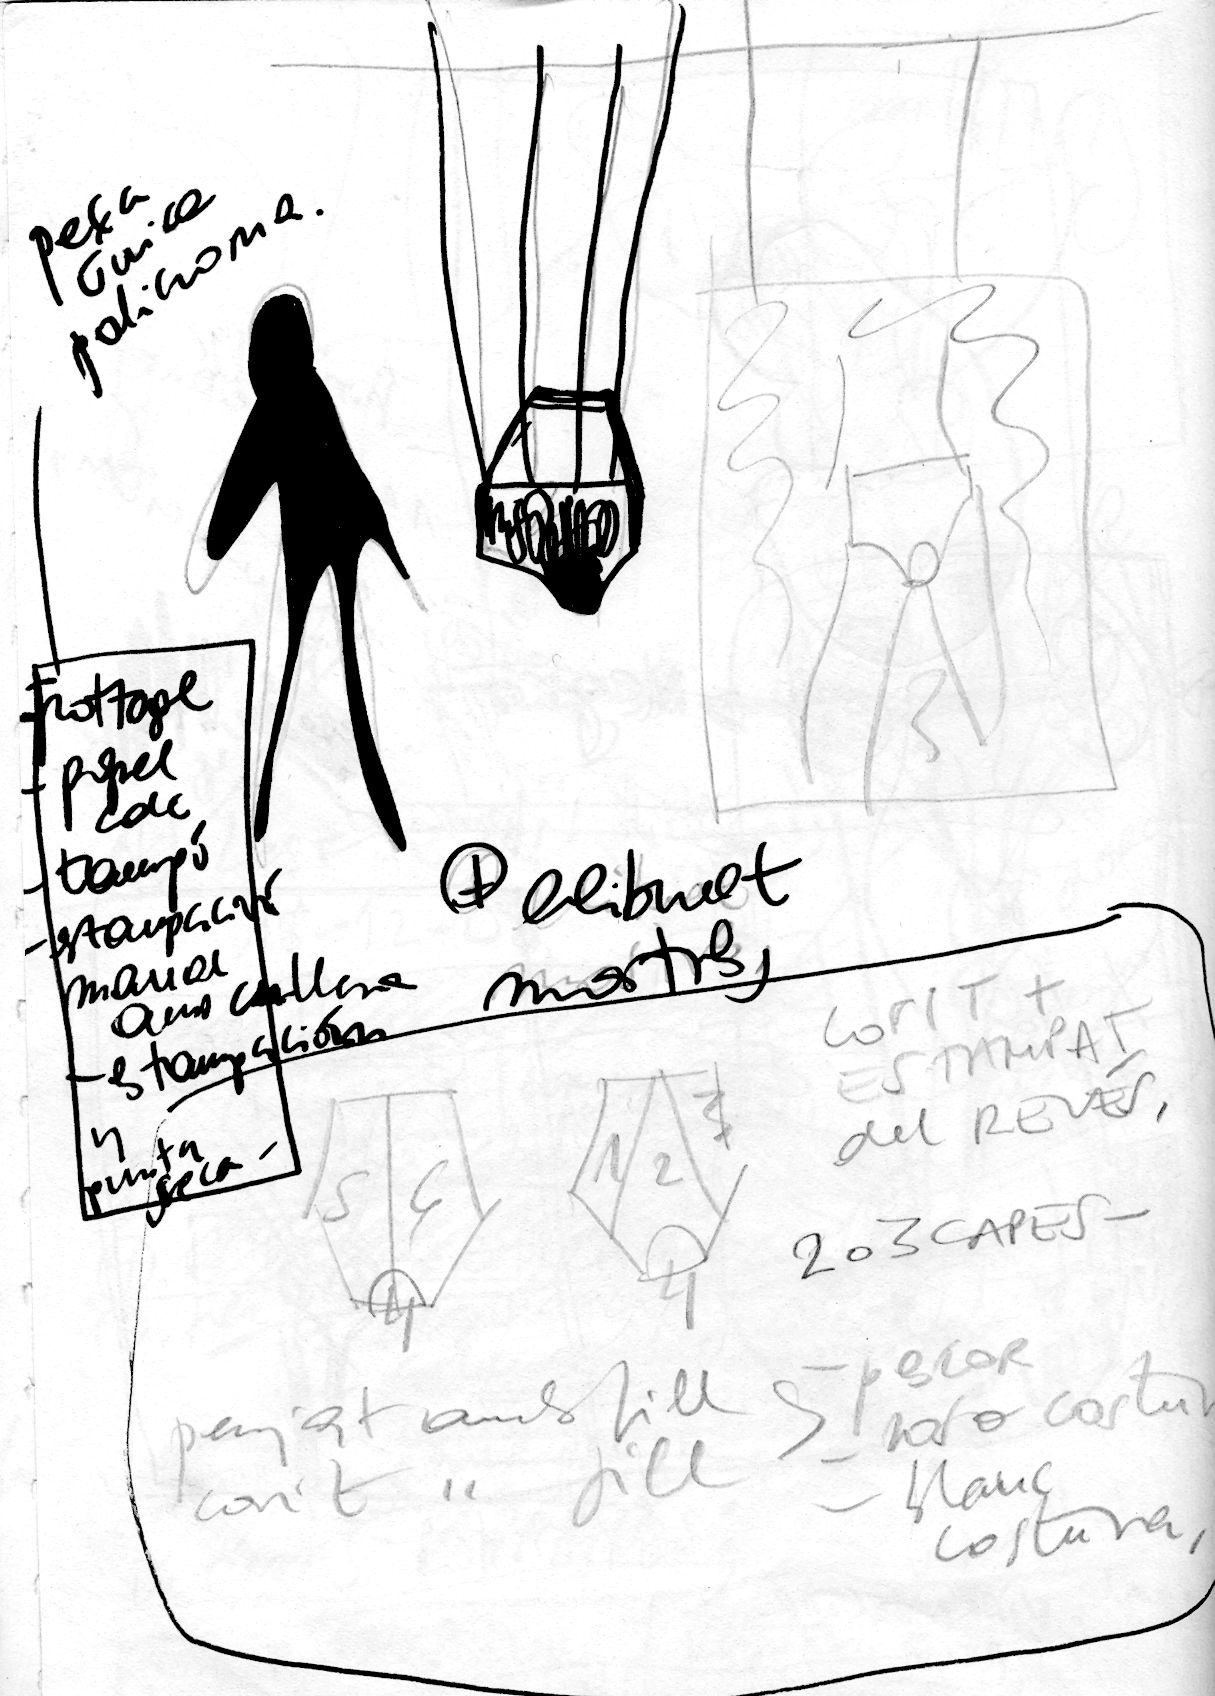 peça
única
policroma.
- frottage
- papel
calc
- tampó
- estampació
manual
amb cullera
- estampación
punta
seca -
+ dibuet
mostres,
COSIT +
ESTAMPAT
del REVÉS,
1 2 3
5 6
4 4
2 o 3 CAPES -
penjat amb fill
- pescar
- roso costura
cosit " fill
- blanc
costura,